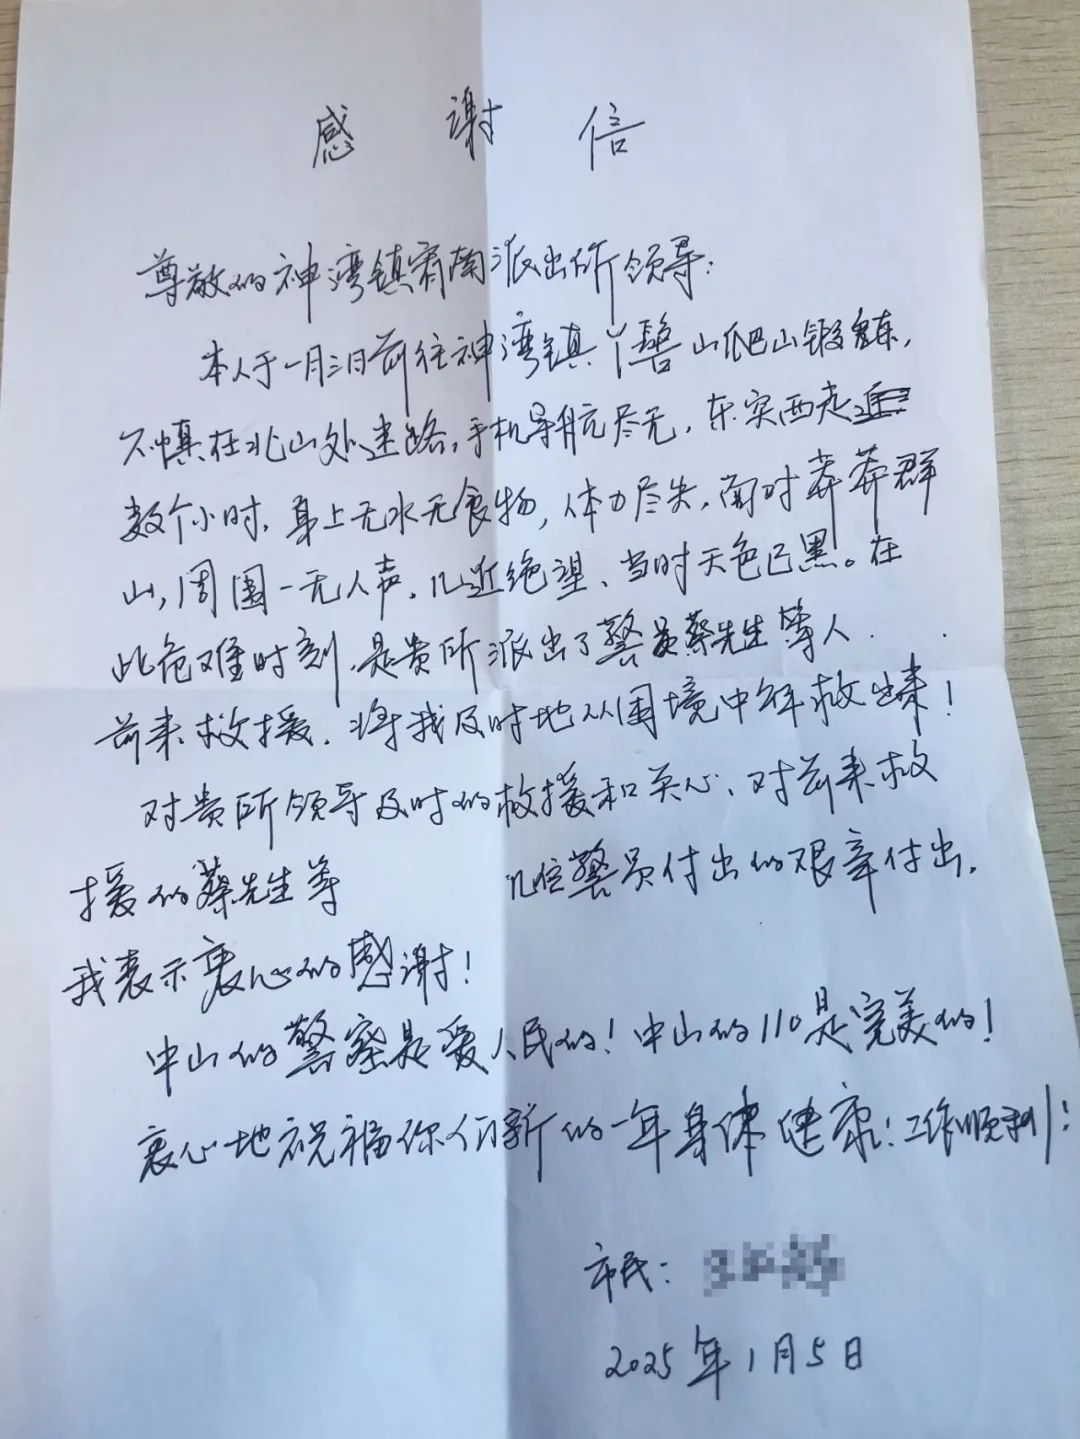 感谢信
尊敬的神湾镇宥南派出所领导:
本人于一月三日前往神湾镇丫髻山爬山锻炼,
不慎在北山处迷路,手机导航尽无,东突西走
数个小时,身上无水无食物,体力尽失,面对莽莽群
山,周围一无人声,几近绝望、当时天色已黑。在
此危难时刻,是贵所派出了警员蔡先生等人
前来救援,将我及时地从困境中解救出来!
对贵所领导及时的救援和关心、对前来救
援的蔡先生等 几位警员付出的艰辛付出,
我表示衷心的感谢!
中山的警察是爱人民的!中山的110是完美的!
衷心地祝福你们新的一年身体健康!工作顺利!
市民:
2025年1月5日